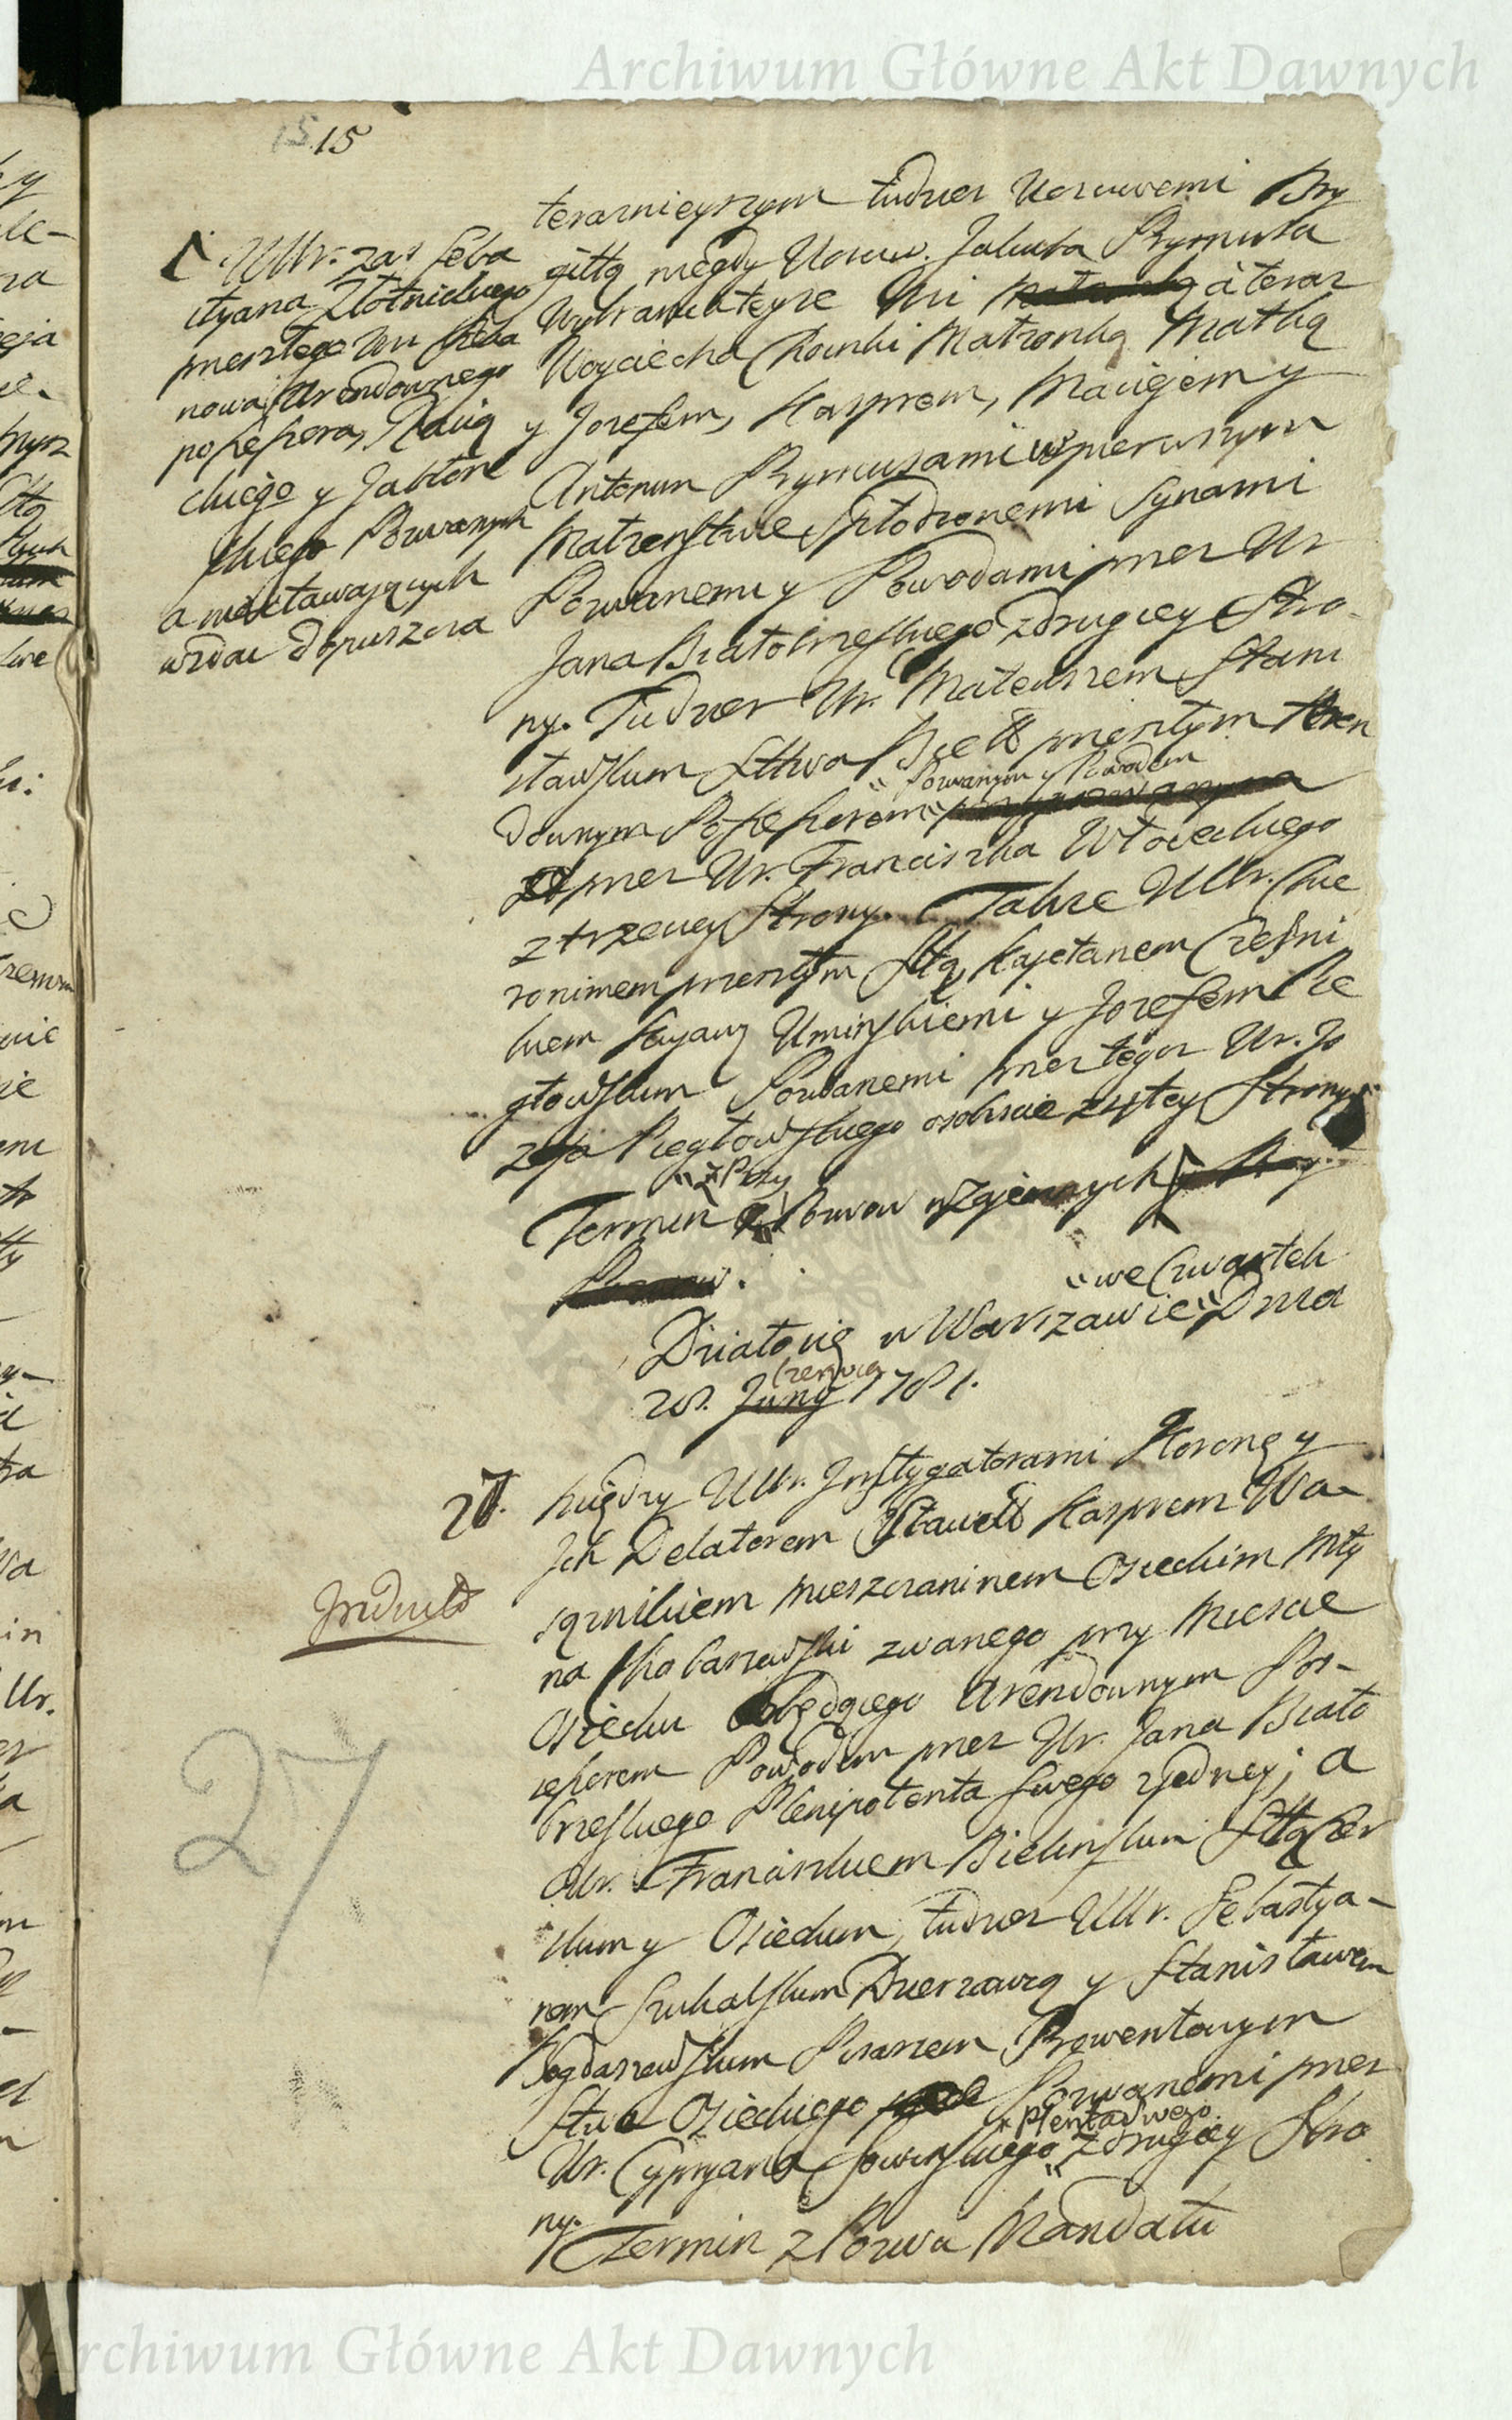 Archiwum Główne Akt Dawnych
15 15
teraznieyszym tudzież Uczciwemi Bry
gittą niegdy Uczciw. Jakuba Rymusa
Wybranieckiego a teraz
Woyciecha Małżonką Matką
y Jozefem, Kasprem, Maciejem y
Antonim Rymusami w pierwszym
Małżenstwie Spłodzonemi Synami
Pozwanemi y Powodami przez Ur
Jana Białobrzeskiego z drugiey Stro-
ny. Tudzież Ur. Mateuszem Stani
sławskim Sttwa przeszłym Aren
downym Possessorem Pozwanym y Powodem
przez Ur. Franciszka Włodeckiego
z trzeciey Strony. Także UUr. Hie
ronimem przeszłym Sttą, Kajetanem Czesni
kiem Umińskiemi y Jozefem Pie
głowskim Pozwanemi przez tegoż Ur. Jo
zefa Piegłowskiego osobiscie z 4tey Strony
Termin z Przy Pozwow wzajemnych
UUr. zaś Seba
styana Złotnickiego
przeszłego
nowa Arendownego
possessora,
ckiego y Jabłon
skiego Pozwanych
a niestawaiących
wzdac dopuszcza
we Czwartek
Działo się w Warszawie Dnia
28. Juny Czerwca 1781.
27. Między UUr. Instygatorami Koronę y
Ich Delatorem Sławett Kasprem Wa-
sąznikiem Mieszczaninem Osieckim Mły
na zwanego przy Miescie
Osiecku będącego Arendownym Pos-
sessorem Powodem przez Ur. Jana Biało
brzeskiego Plenipotenta swego z jedney; a
Ur. Franciszkiem Bielinskim Sttą Czer
skim y Osieckim, tudzież UUr. Sebastya-
nem Suchalskim Dzierzawcą y Stanisławem
Bogdaszewskim Pisarzem Prowentowym
Sttwa Osieckiego Pozwanemi przez
Ur. Cypryana Sowinskiego Plenta swego z drugiey Stro
ny.
Termin z Pozwu Mandatu
Indukt
27
Archiwum Główne Akt Dawnych